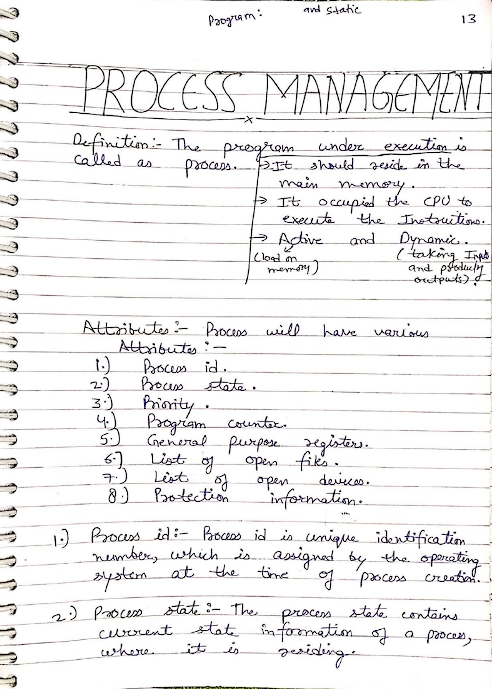 Program: and static
13
PROCESS MANAGEMENT
x
Definition:- The program under execution is
called as process. → It should reside in the
main memory.
→ It occupied the CPU to
execute the Instructions.
→ Active and Dynamic.
(load on memory) (taking Input and producing outputs).
Attributes:- Process will have various
Attributes:-
1.) Process id.
2.) Process state.
3.) Priority.
4.) Program counter.
5.) General purpose registers.
6.) List of open files.
7.) List of open devices.
8.) Protection information.
1.) Process id:- Process id is unique identification
number, which is assigned by the operating
system at the time of process creation.
2.) Process state:- The process state contains
current state information of a process,
where it is residing.